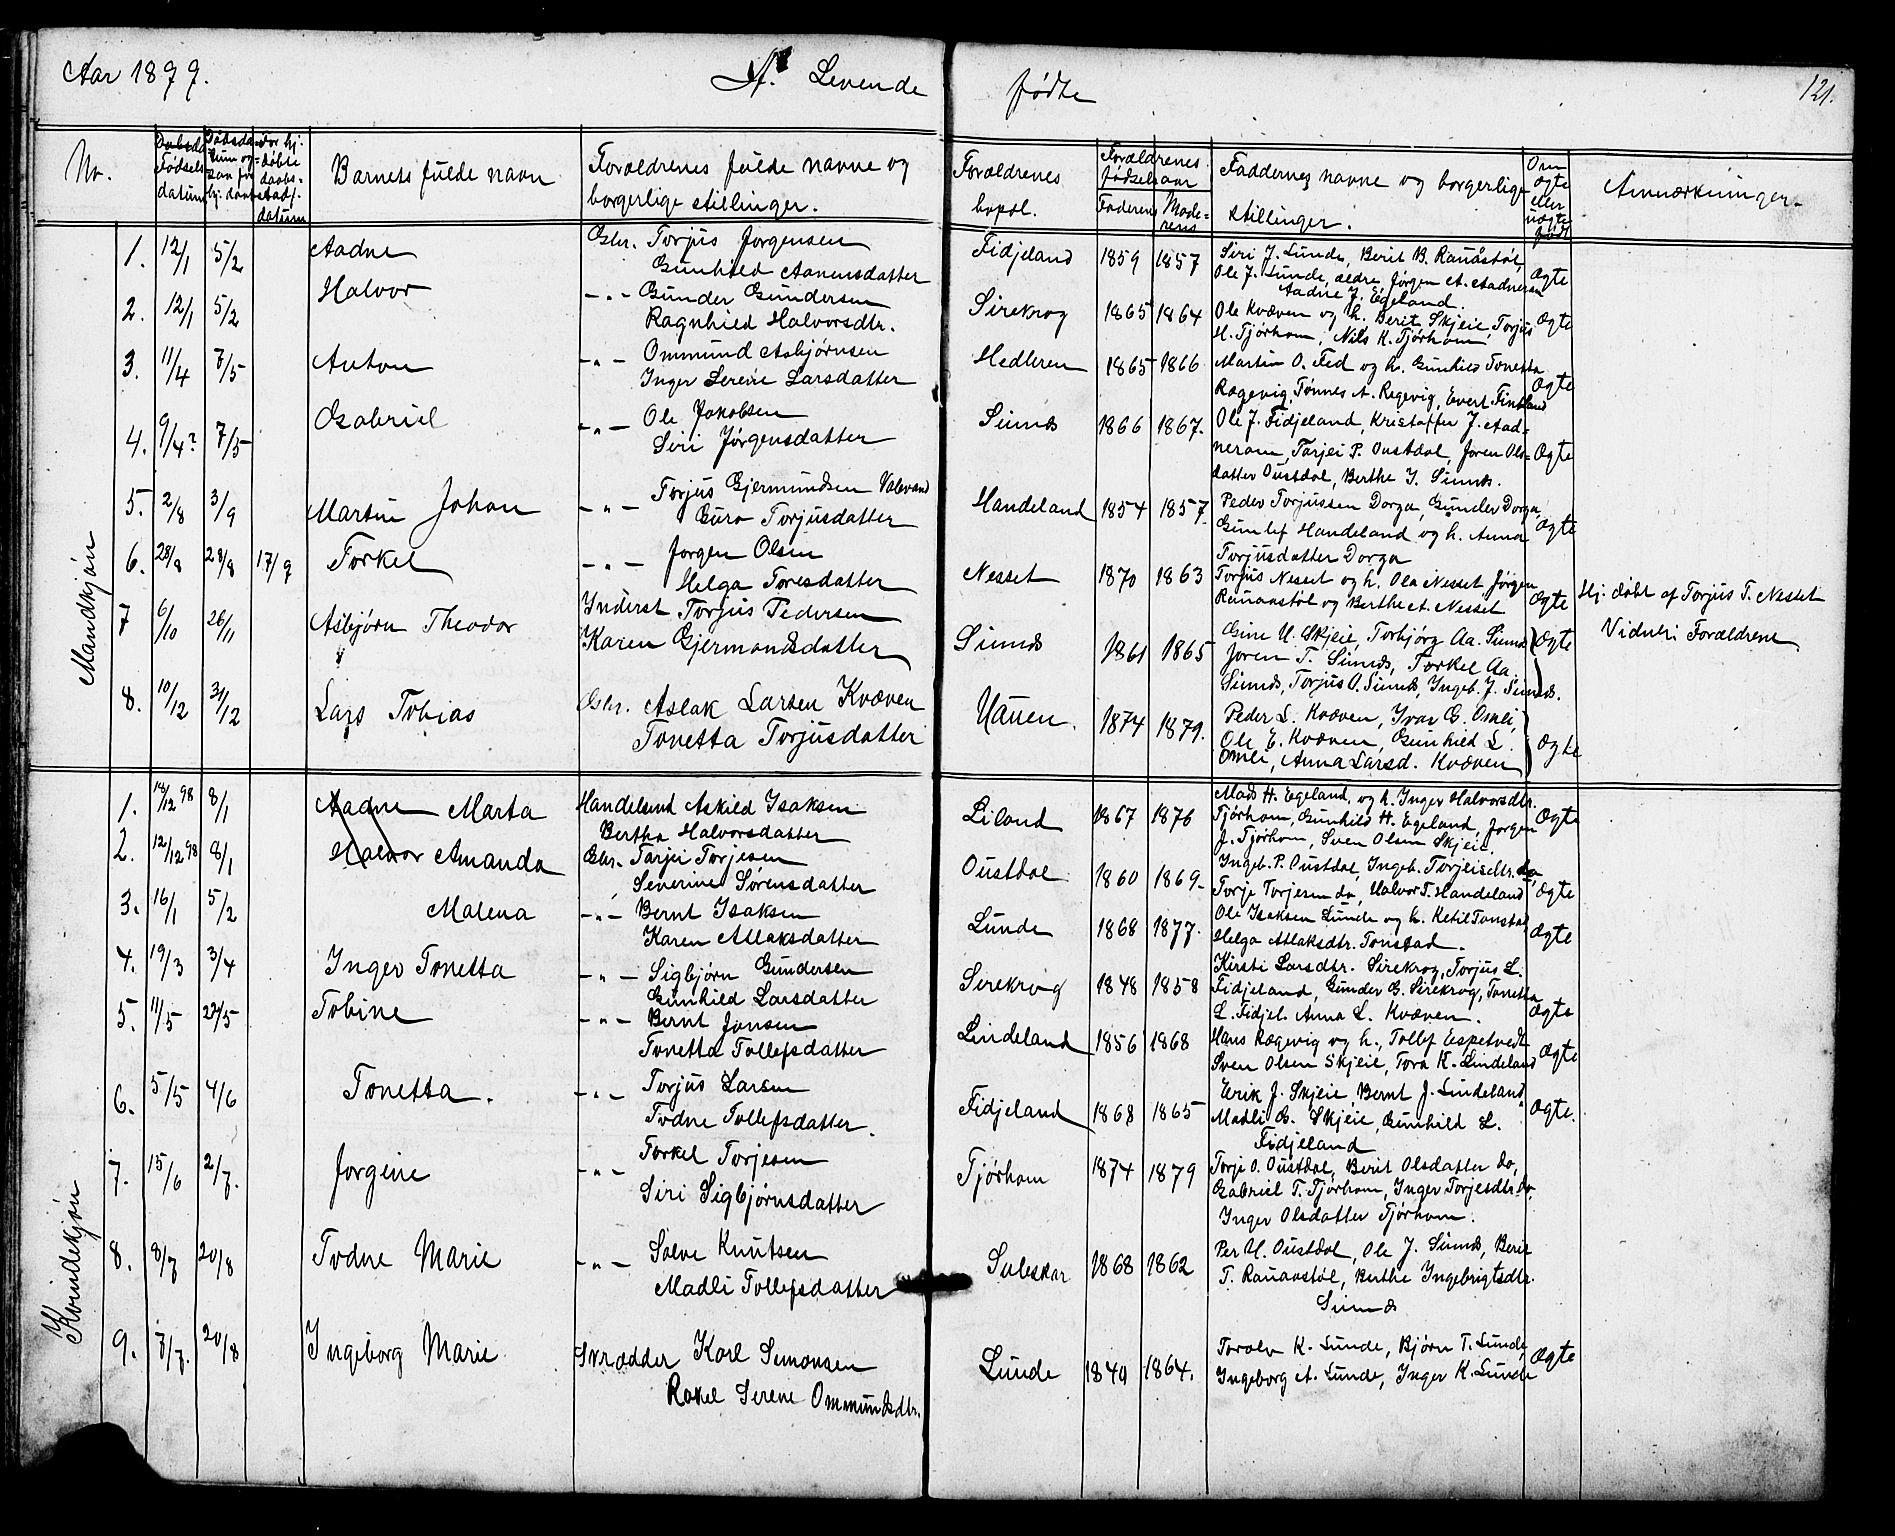 Aar 1899.
A. Levende fødte
121.
No.
Fødsels datum
Barnets fulde navn
Forældrenes fulde navne og borgerlige stillinger.
Forældrenes bopæl.
Forældrenes fødselsaar
Faderens
Moderens
Faddernes navne og borgerlige stillinger.
Om ægte eller uægte født
Anmærkninger.
Mandkjøn
1. 12/1 5/2 Aadne
Gbr. Torjus Jørgensen
Gunhild Aanensdatter
Fidjeland 1859 1857
Siri J. Lunde, Berit B. Rauåstøl,
Ole J. Lunde, ældre, Jørgen A. Aadneram
Aadne J. Egeland.
Ægte
2. 12/1 5/2 Halvor
-"- Gunder Gundersen
Ragnhild Halvorsdtr.
Sirekrog 1865 1864
Ole Kvæven og h. Berit Skjeie, Torjus
H. Tjørhom, Nils K. Tjørhom
Ægte
3. 11/4 7/5 Anton
-"- Ommund Asbjørnsen
Inger Serene Larsdatter
Hedleren 1865 1866
Martin O. Fed og h. Gunhild Tonetta
Rægevig, Tønnes A. Regevig, Evert Fintland
Ægte
4. 9/4? 7/5 Gabriel
-"- Ole Jakobsen
Siri Jørgensdatter
Sinnes 1866 1867.
Ole J. Fidjeland, Kristoffer J. Aad=
neram, Tarjei P. Oustdal, Joren Ols=
datter Oustdal, Berthe J. Sinnes.
Ægte
5. 2/8 3/9 Martin Johan
-"- Torjus Gjermundsen Valevand
Guro Torjusdatter
Handeland 1854 1857.
Peder Torjussen Dorga, Gunder Dorga,
Gunlef Handeland og h. Anna
Torjusdatter Dorga
Ægte
6. 28/8 28/8 17/9 Torkel
-"- Jørgen Olsen
Helga Toresdatter
Nesset 1870 1863
Torjus Nesset og h. Ola Nesset, Jørgen
Rauaastøl og Berthe A. Nesset
Ægte
Hj. døbt af Torjus T. Nesset
Vidner: Forældrene
7 6/10 26/11 Asbjørn Theodor
Inderst Torjus Pedersen
Karen Gjermondsdatter
Sinnes 1861 1865
Gine U. Skjeie, Torbjørg Aa. Sinnes
Joren T. Sinnes, Torkel Aa.
Sinnes, Torjus O. Sinnes, Ingeb. J. Sinnes.
Ægte
8. 10/12 31/12 Lars Tobias
Gbr. Aslak Larsen Kvæven
Tonetta Torjusdatter
Hauen. 1874 1879.
Peder L. Kvæven, Ivar G. Omli,
Ole E. Kvæven, Gunhild L.
Omli, Anna Larsd. Kvæven
Ægte
Kvindekjøn
1. 14/12 98 8/1 Aadne Marta
Handelsmd Askild Isaksen
Bertha Halvorsdatter
Liland 1867 1876
Mads H. Egeland, og h. Inger Halvorsdtr.
Tjørhom, Gunhild H. Egeland, Jørgen
J. Tjørhom, Sven Olsen Skjeie.
Ægte
2. 12/12 98 8/1 Halvor Amanda
Gbr. Tarjei Torjesen
Severine Sørensdatter
Oustdal 1860 1869
Ingeb. P. Oustdal, Ingeb. Torjeisdtr. do,
Torje Torjesen do, Halvor T. Handeland
Ægte
3. 16/1 5/2 Malena
-"- Bernt Isaksen
Karen Atlaksdatter
Lunde 1868 1877.
Ole Isaksen Lunde og h. Ketil Tonstad
Helga Atlaksdtr. Tonstad.
Ægte
4. 19/3 3/4 Inger Tonetta
-"- Sigbjørn Gundersen
Gunhild Larsdatter
Serekrog 1848 1858
Kirsti Larsdtr. Sirekrog, Torjus L.
Fidjeland, Gunder G. Sirekrog, Tonetta
L. Fidjel. Anna L. Kvæven.
Ægte
5. 11/5 27/5 Tobine
-"- Bernt Jonsen
Tonetta Tollefsdatter
Lindeland 1856 1868
Hans Rægevig og h., Tollef Espetvedt
Sven Olsen Skjeie, Tora K. Lindeland
Ægte
6. 5/5 4/6 Tonetta.
-"- Torjus Larsen
Todne Tollefsdatter.
Fidjeland 1868 1865
Eirik J. Skjeie, Bernt J. Lindeland
Madli G. Skjeie, Gunhild L.
Fidjeland
Ægte.
7. 15/6 2/7. Jorgine
-"- Torkel Torjesen
Siri Sigbjørnsdatter
Tjørhom 1874 1879
Torje O. Oustdal, Berit Olsdatter do,
Gabriel T. Tjørhom, Inger Torjesdtr. do,
Inger Olsdatter Tjørhom.
8. 8/7 20/8 Todne Marie
-"- Salve Knutsen
Madli Tollefsdatter
Suleskar 1868 1862
Per U. Oustdal, Ole J. Sinnes, Berit
T. Rauaastøl, Berthe Ingebrigtsdtr.
Sinnes
9. 7/7. 20/8 Ingeborg Marie
Skrædder Karl Simonsen
Rakel Serene Ommundsdtr.
Lunde 1864.
K. Lunde, Bjørn T. Lunde,
Ingeborg A. Lunde, Inger K. Lunde
Ægte